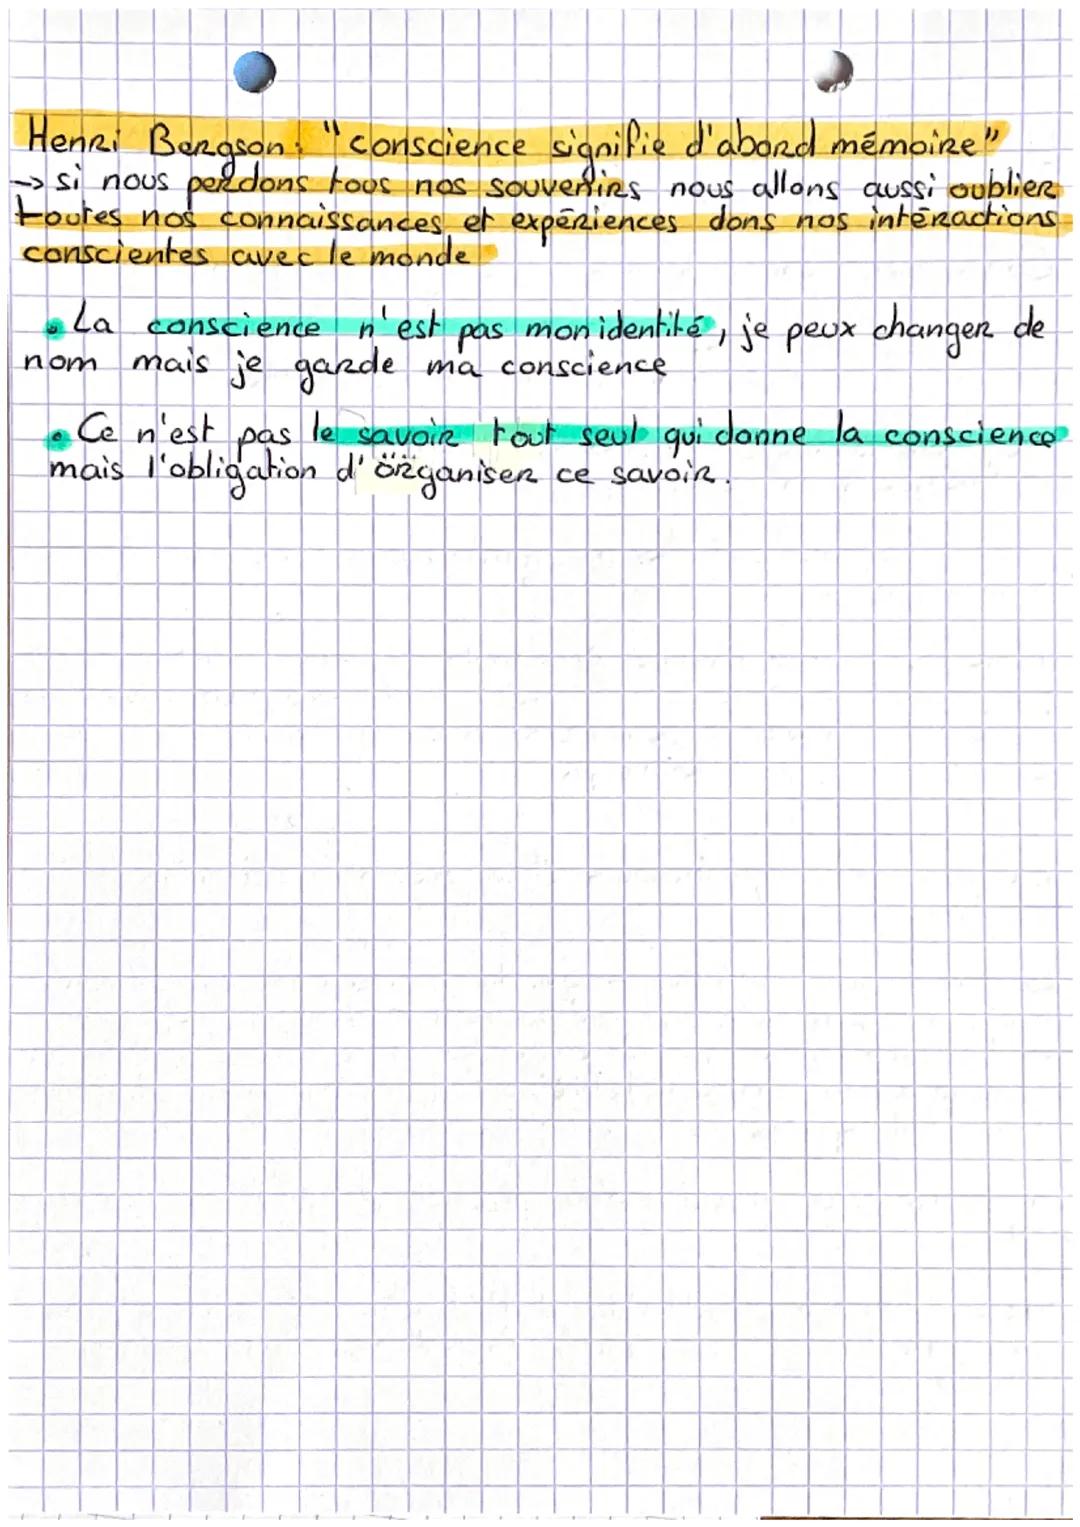 Henri Bergson: "conscience signifie d'abord mémoire"
-> si nous perdons tous nos souvenirs nous allons aussi oublier
toutes nos connaissances et expériences dons nos intéractions
conscientes avec le monde
• La conscience n'est pas mon identité, je peux changer de
nom mais je garde ma conscience
• Ce n'est pas le savoir tout seul qui donne la conscience
mais l'obligation d'organiser ce savoir.